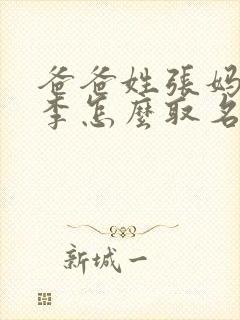 爸爸姓張妈
李怎麼取名
新城一